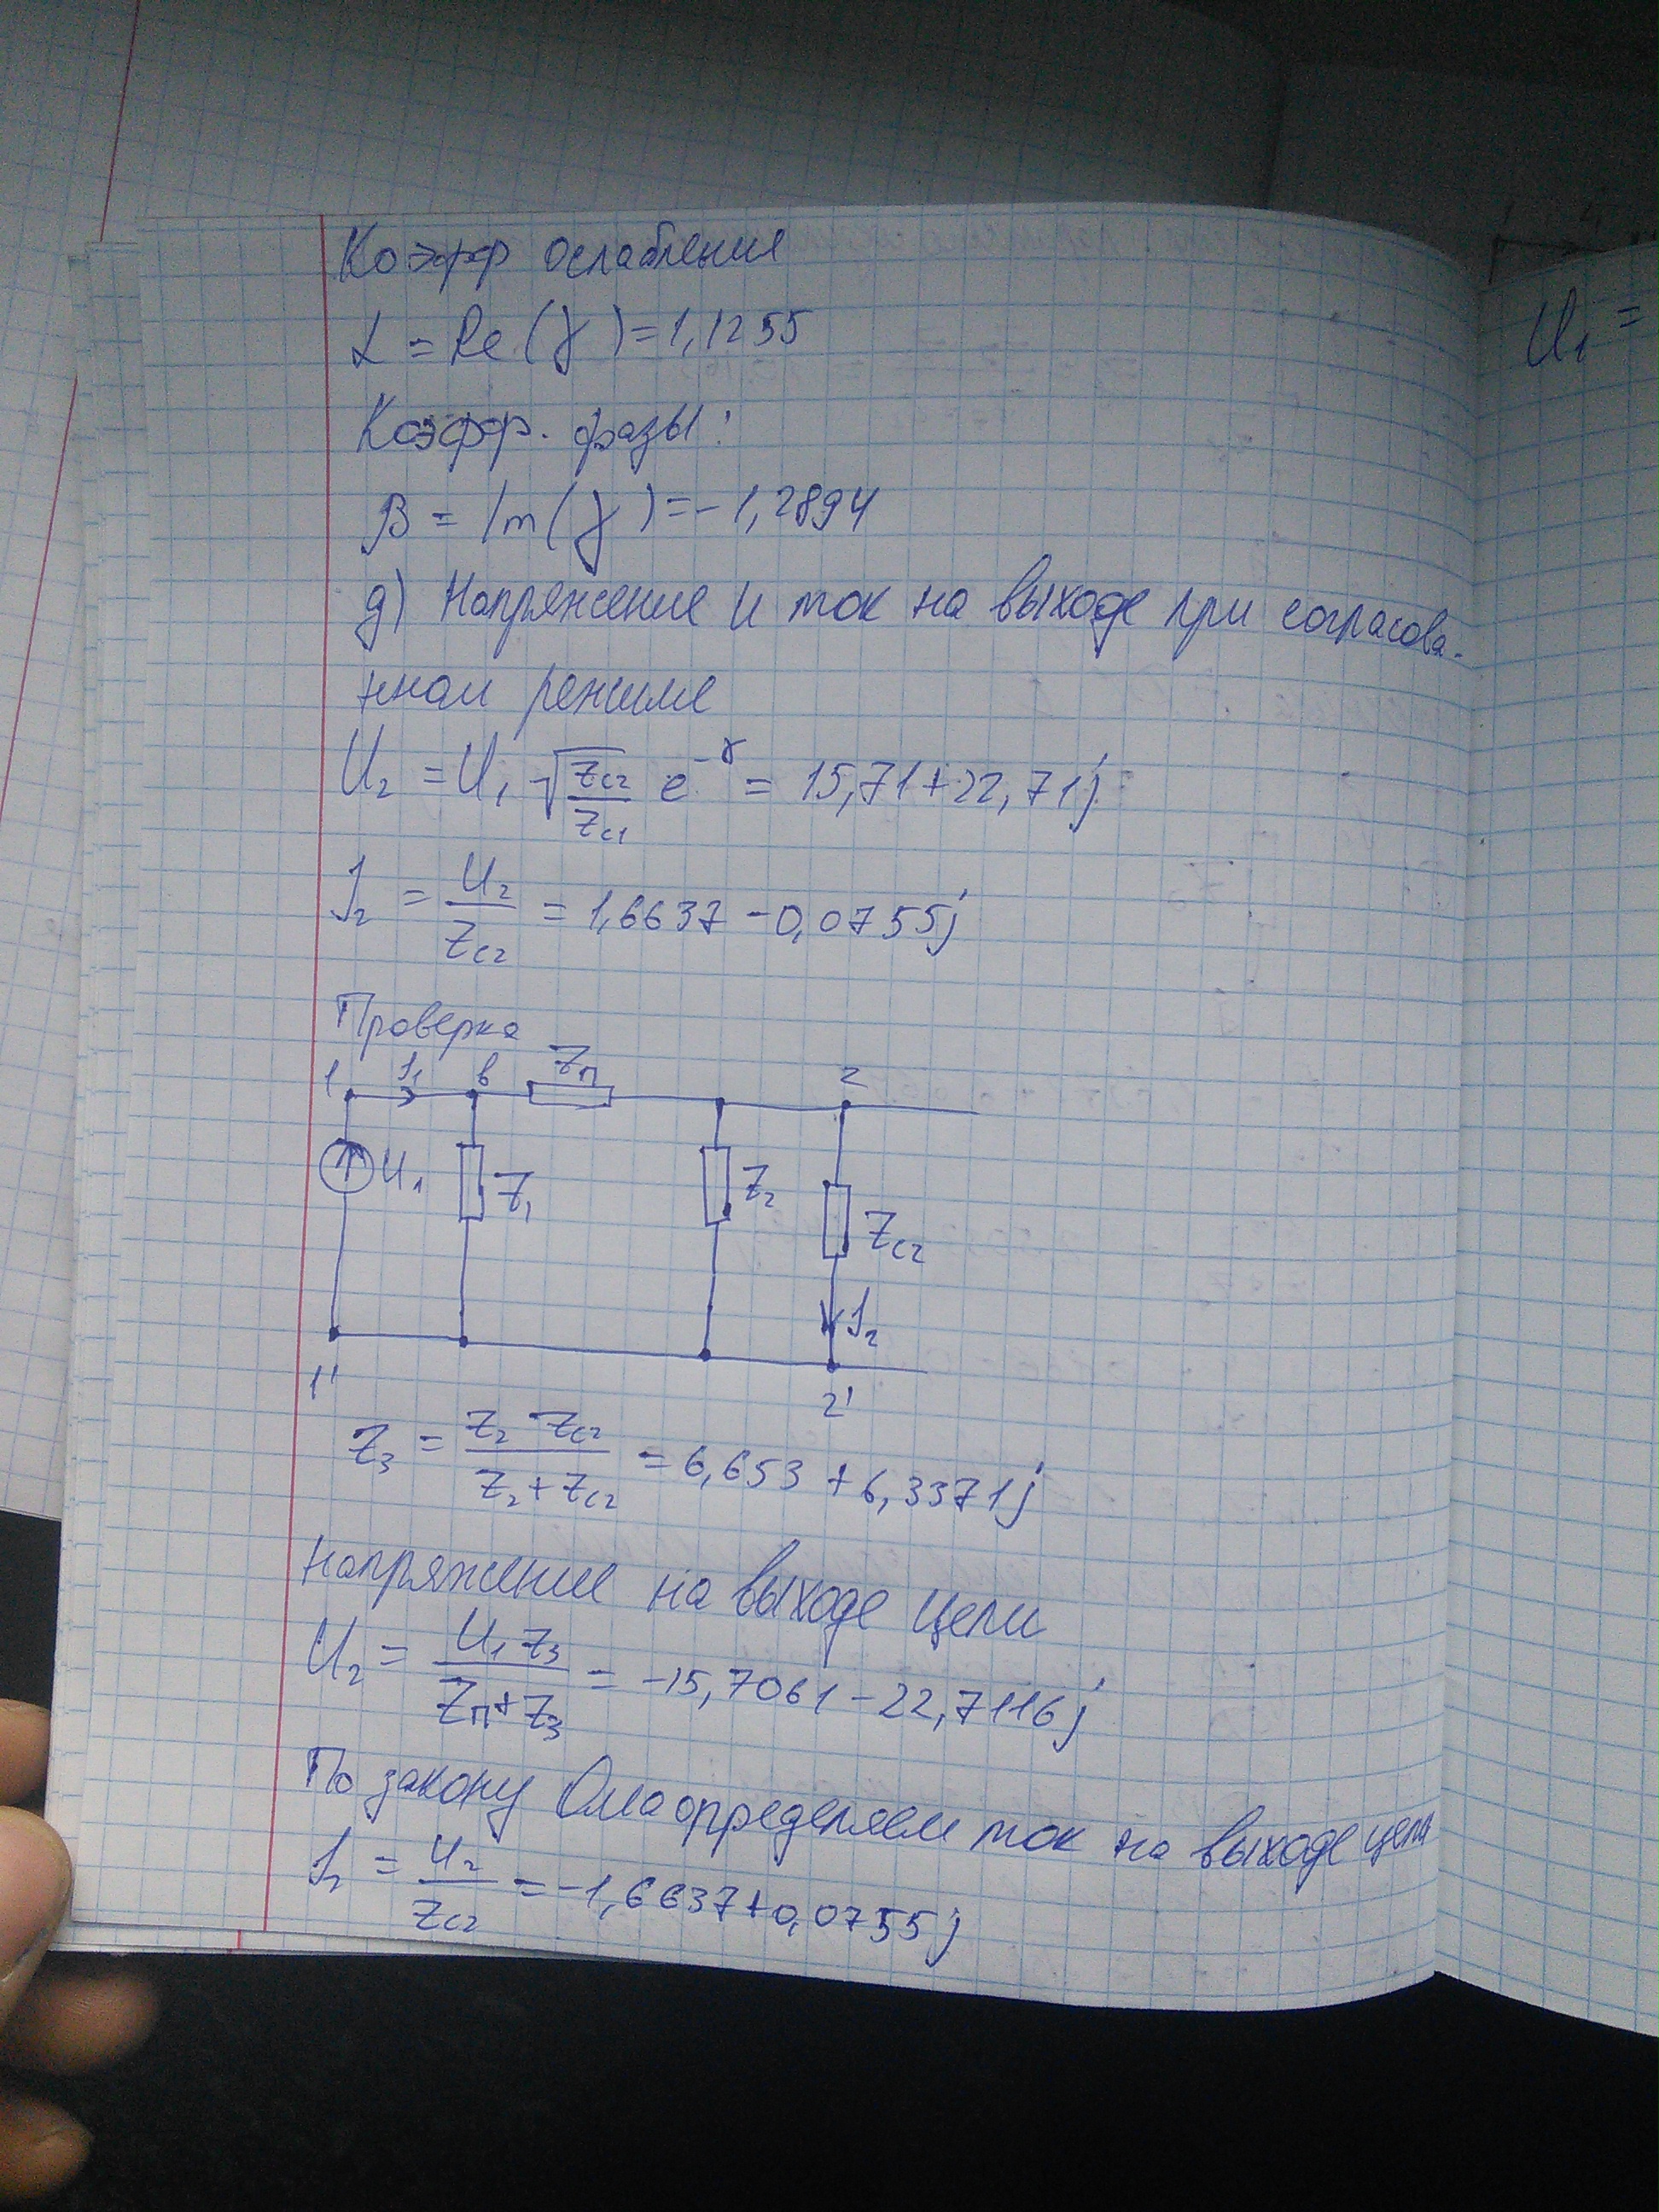 Коэфф ослабления
α = Re(γ) = 1,1255
Коэфф. фазы:
β = Im(γ) = -1,2894
д) Напряжение и ток на выходе при согласова-
нном режиме
U₂ = U₁ √(Zc2/Zc1) e^-γ = 15,71 + 22,71j
I₂ = U₂/Zc2 = 1,6637 - 0,0755j
Проверка
1 I₁ в Zп 2
U₁ Z₁ Z₂ Zc2
I₂
1' 2'
Z₃ = Z₂ Zc2/(Z₂ + Zc2) = 6,653 + 6,3371j
напряжение на выходе цепи
U₂ = U₁ Z₃/(Zп + Z₃) = -15,7061 - 22,7116j
По закону Ома определяем ток на выходе цепи
I₂ = U₂/Zc2 = -1,6637 + 0,0755j
U₁ =